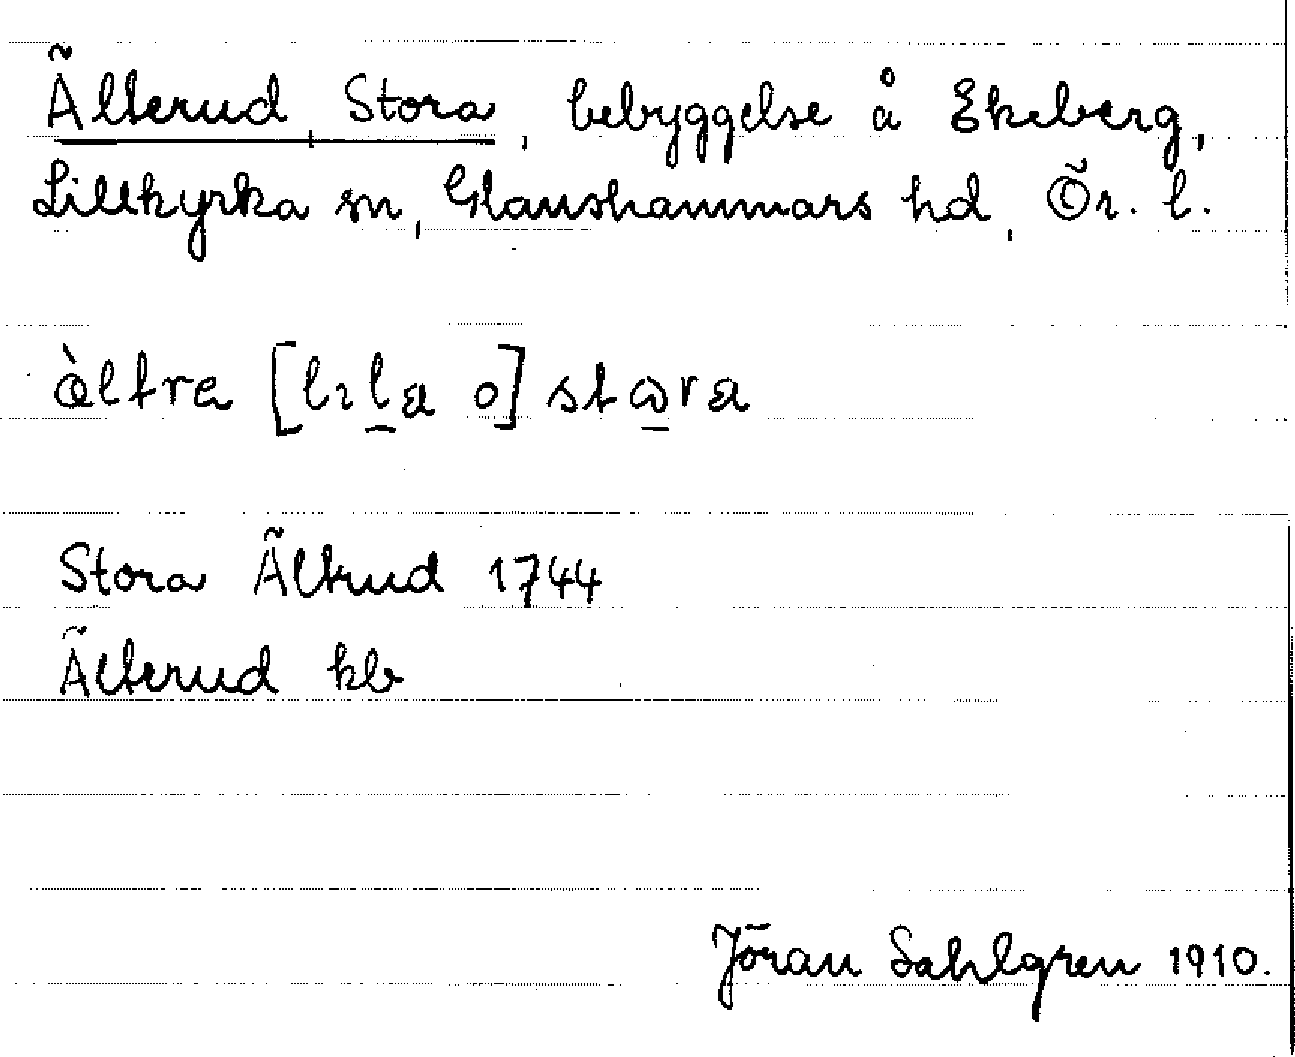 Älterud, Stora, bebyggelse å Ekeberg,
Lillkyrka sn, Glanshammars hd, Ör. l.
àltra [lɪla o] stɷra
Stora Ältrud 1744
Älterud kb
Jöran Sahlgren 1910.